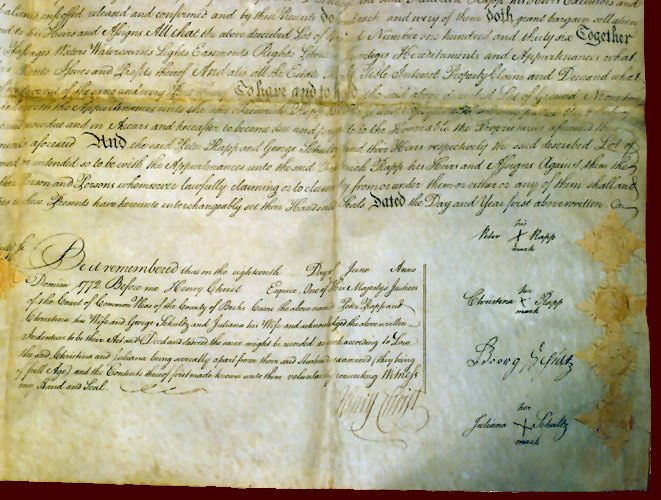 aliened enfeoffed released and confirmed and by these Presents do and each and every of them doth grant bargain sell alien
Heirs and Assigns All that the above described Lot of Number one hundred and thirty six Together
Passages Waters Watercourses Lights Easements Rights Hereditaments and Appurtenances what
Rents Issues and Profits thereof And also all the Estate Title Interest Property Claim and Demand what
of the same and every To have and to hold the said above Lot of Ground
the Appurtenances unto the said
now due and in Arrears and hereafter to become due and to the Honorable the Proprietaries aforesaid
aforesaid And the said Peter Rapp and George Schultz and their Heirs respectively the said described Lot of
or intended so to be with the Appurtenances unto the said Rapp his Heirs and Assigns Against them the
Person and Persons whomsoever lawfully claiming or to claim by from or under them or either or any of them shall and
to these Presents have hereunto interchangeably set their Hands and Seals Dated the Day and Year first above written
Be it remembered that on the eighteenth Day of June Anno
Domini 1772 Before me Henry Christ Esquire One of His Majestys Justices
of the Court of Common Pleas of the County of Berks Came the above named Peter Rapp and
Christina his Wife and George Schultz and Juliana his Wife and acknowledged the above written
Indenture to be their Act and Deed and desired the same might be recorded as such according to Law
the said Christina and Juliana being severally apart from their said Husbands examined (they being
of full Age) and the Contents thereof first made known unto them voluntarily consenting Witness
my Hand and Seal
Henry Christ
his
Peter X Rapp
mark
her
Christina X Rapp
mark
Georg Schultz
her
Juliana X Schultz
mark